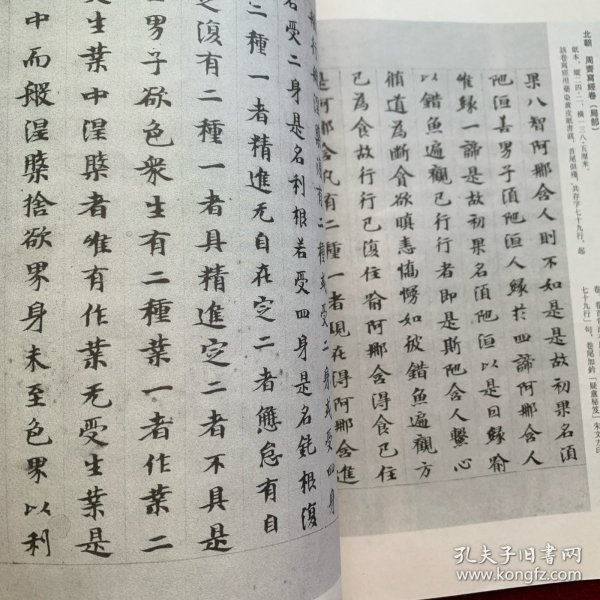 北朝 周齋寫經卷（局部）
紙本，縱二四·二，橫一三八·五厘米。
該卷寫經用藥染黄皮紙書就，首尾俱殘，共存字七十九行，起
七十九行」句。卷尾加鈐「疑盦秘笈」朱文方印
果八智阿那含人則不如是是故初果名湏
陁洹善男子湏陁洹人縁扵四諦阿那含人
唯縁一諦是故初果名湏陁洹以是因縁喻
以錯魚遍觀已行行者即是斯陁含人繫心
脩道為斷貪欲瞋恚憍慢如彼錯魚遍觀方
已為食故行行已復住喻阿那含得食已住
是阿那含凡有二種一者現在得阿那含進
有二種或受二身或受四身
若受二身是名利根若受四身是名鈍根復
二種一者精進无自在定二者懈怠有自
復有二種一者具精進定二者不具是
男子欲色衆生有二種業一者作業二
生業中涅槃者唯有作業无受生業是
中而般涅槃捨欲界身未至色界以利
孔夫子旧书网
www.kongfz.com